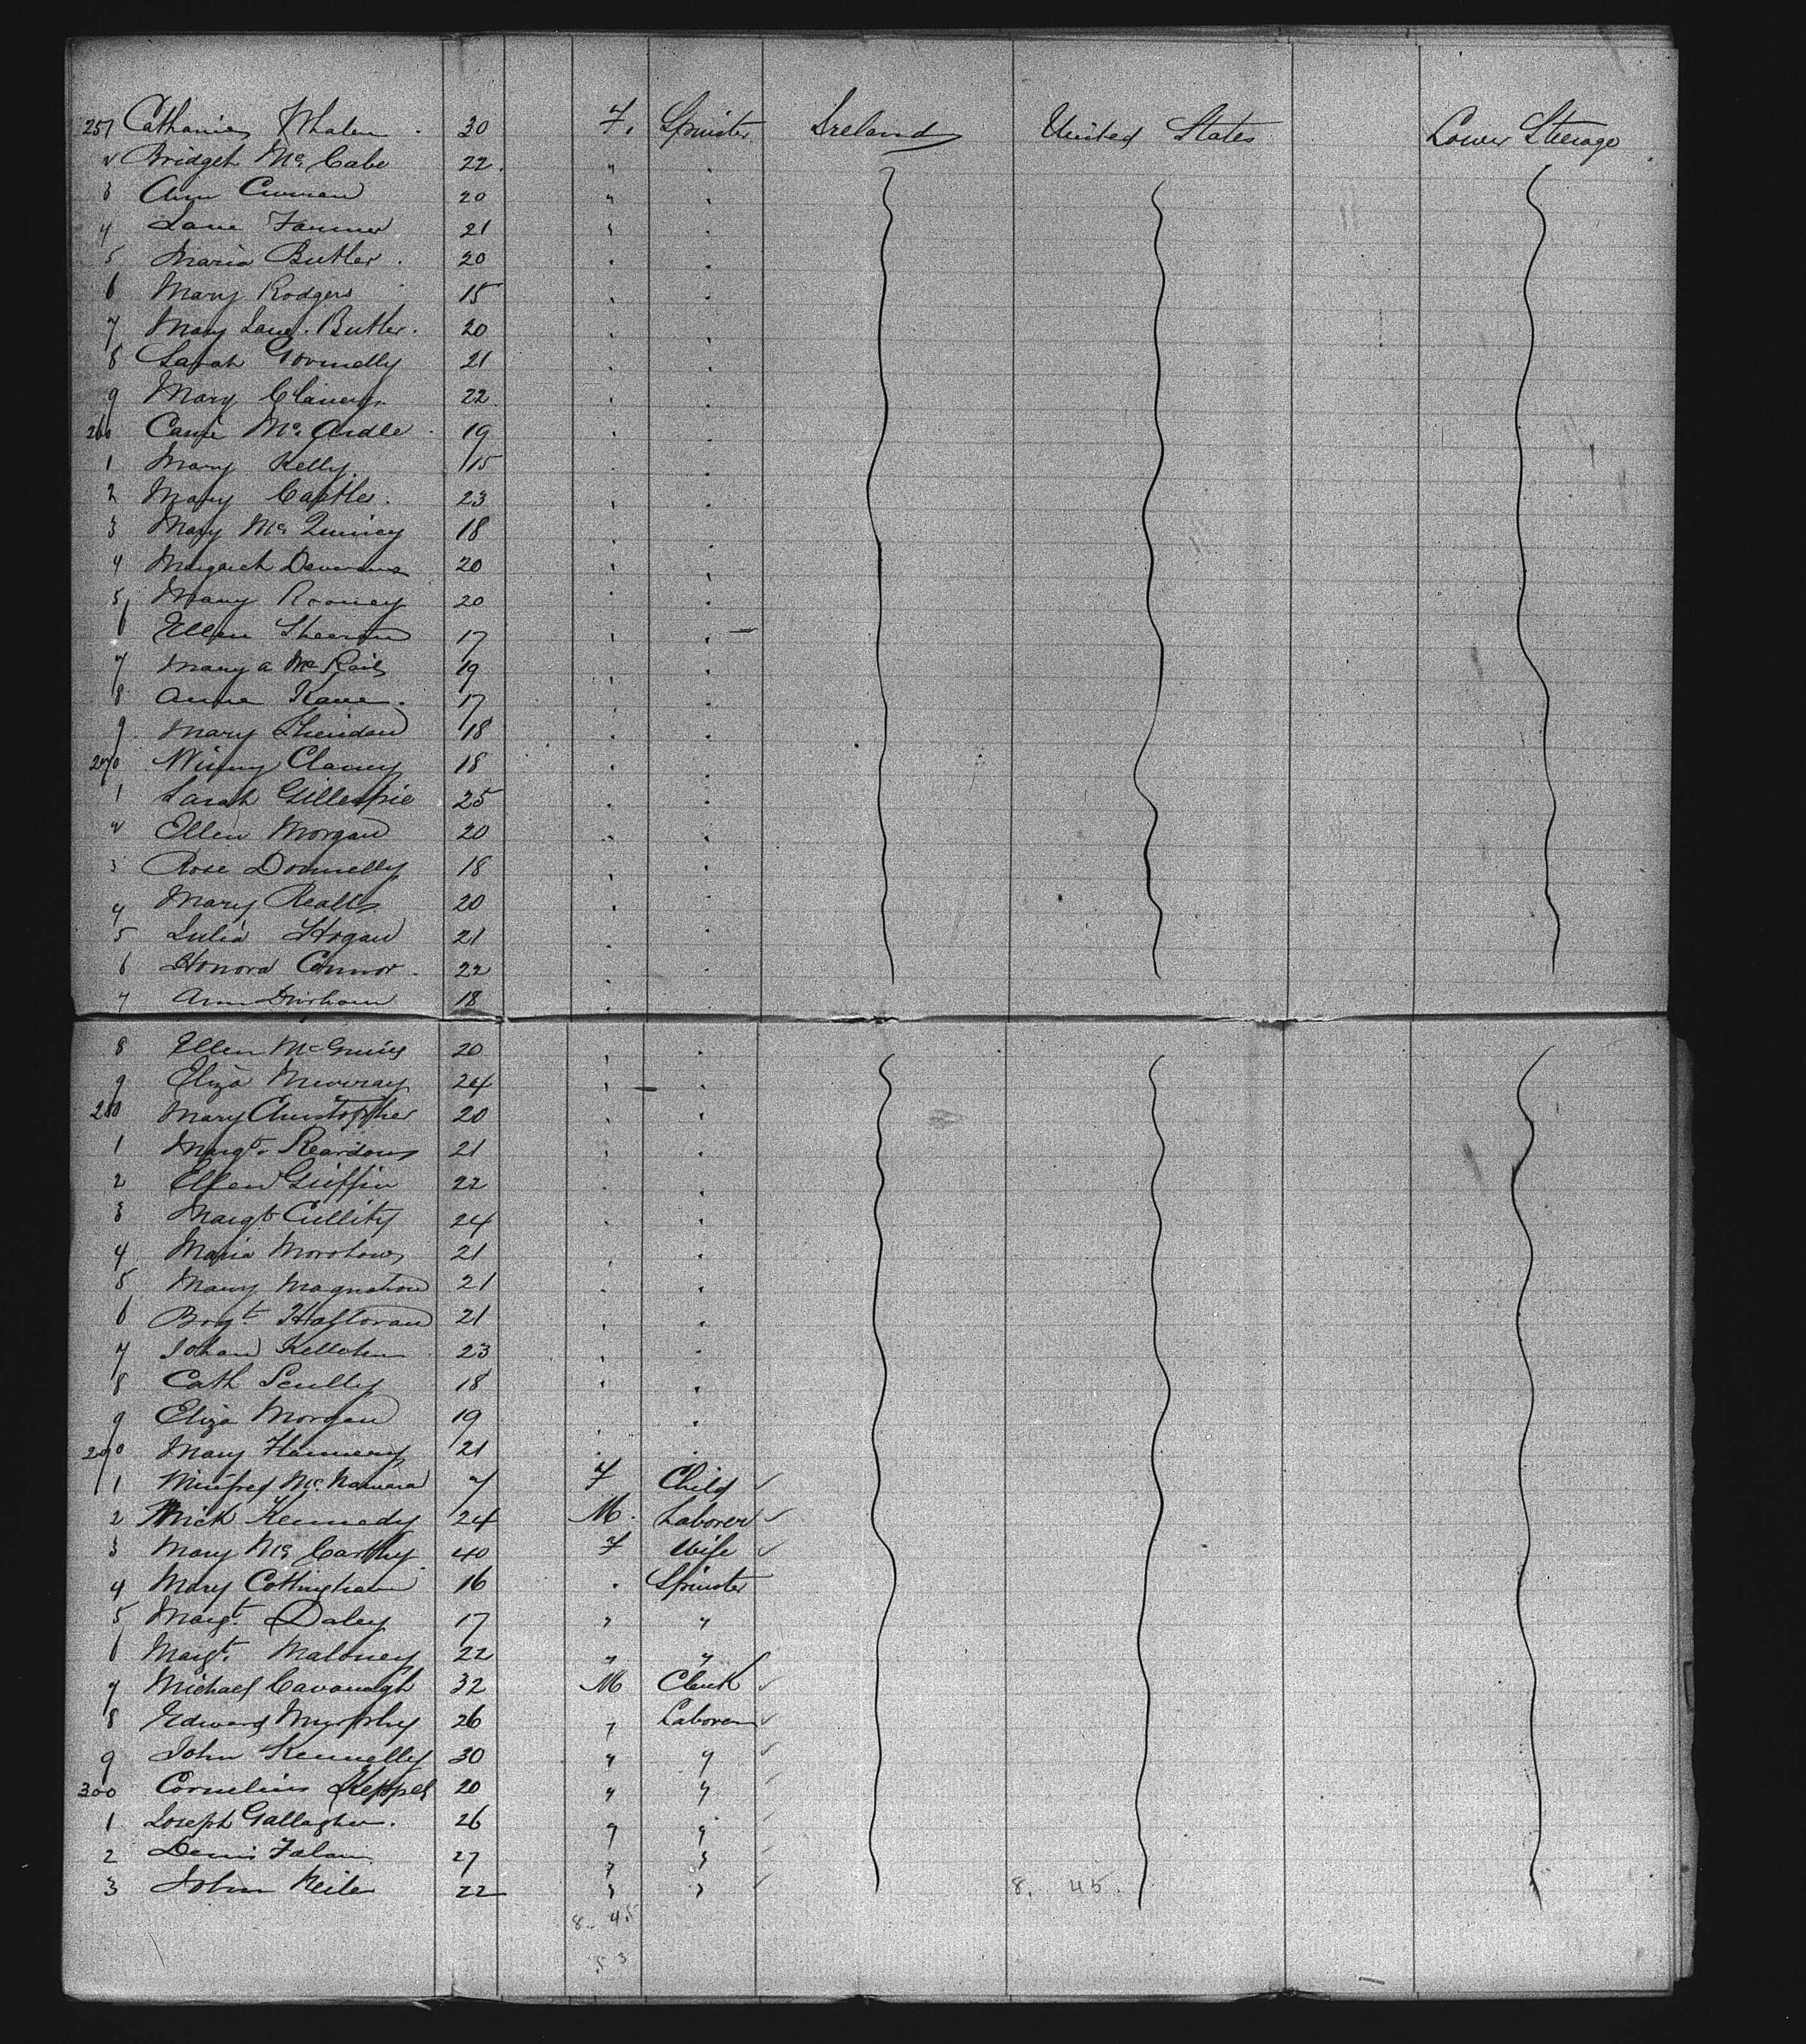 251 Catharine Whalen . 30 F. Spinster Ireland United States Lower Steerage
2 Bridget Mc Cabe 22 " "
3 Ann Curran 20 " "
4 Jane Farmer 21 " "
5 Maria Butler . 20 " "
6 Mary Rodgers 15 " "
7 Mary Jane Butler . 20 " "
8 Sarah Connelly 21 " "
9 Mary Clancy 22 " "
260 Mc Ardle 19 " "
1 Mary Kelly 15 " "
2 Mary . 23 " "
3 Mary Mc Quincy 18 " "
4 Margaret 20 " "
5 Mary Rooney 20 " "
6 Ellen Sheeran 17 " "
7 Mary A 19 " "
8 Anne Kane . 17 " "
9 Mary Sheridan 18 " "
270 Winny Clancy 18 " "
1 Sarah Gillespie 25 " "
2 Ellen Morgan 20 " "
3 Rose Donnelly 18 " "
4 Mary 20 " "
5 Julia Hogan 21 " "
6 Honora Connor . 22 " "
7 Ann 18 "
8 Ellen 20 " "
9 Eliza Murray 24 " "
280 Mary Christopher 20 " "
1 Margt. Reardon 21 " "
2 Ellen Griffin 22 " "
3 Margt Cullity 24 " "
4 Maria 21 " "
5 Mary 21 " "
6 Brgt. Halloran 21 " "
7 Johan 23 " "
8 Cath Scully 18 " "
9 Eliza Morgan 19 " "
290 Mary Flannery 21 " "
1 Winifred Mc Namara 7 F Child
2 Mick Kennedy 24 M. Laborer
3 Mary Mc Carthy 40 F Wife
4 Mary Cottingham 16 " Spinster
5 Margt. Daley 17 " "
6 Margt. Maloney 22 " "
7 Michael Cavanagh 32 M Clerk
8 Edward Murphy 26 " Laborer
9 John Kennelly 30 " "
300 Cornelius Keppel 20 " "
1 Joseph Gallagher . 26 " "
2 Denis 27 " "
3 John 22 " " 8. 45.
8. 45
53